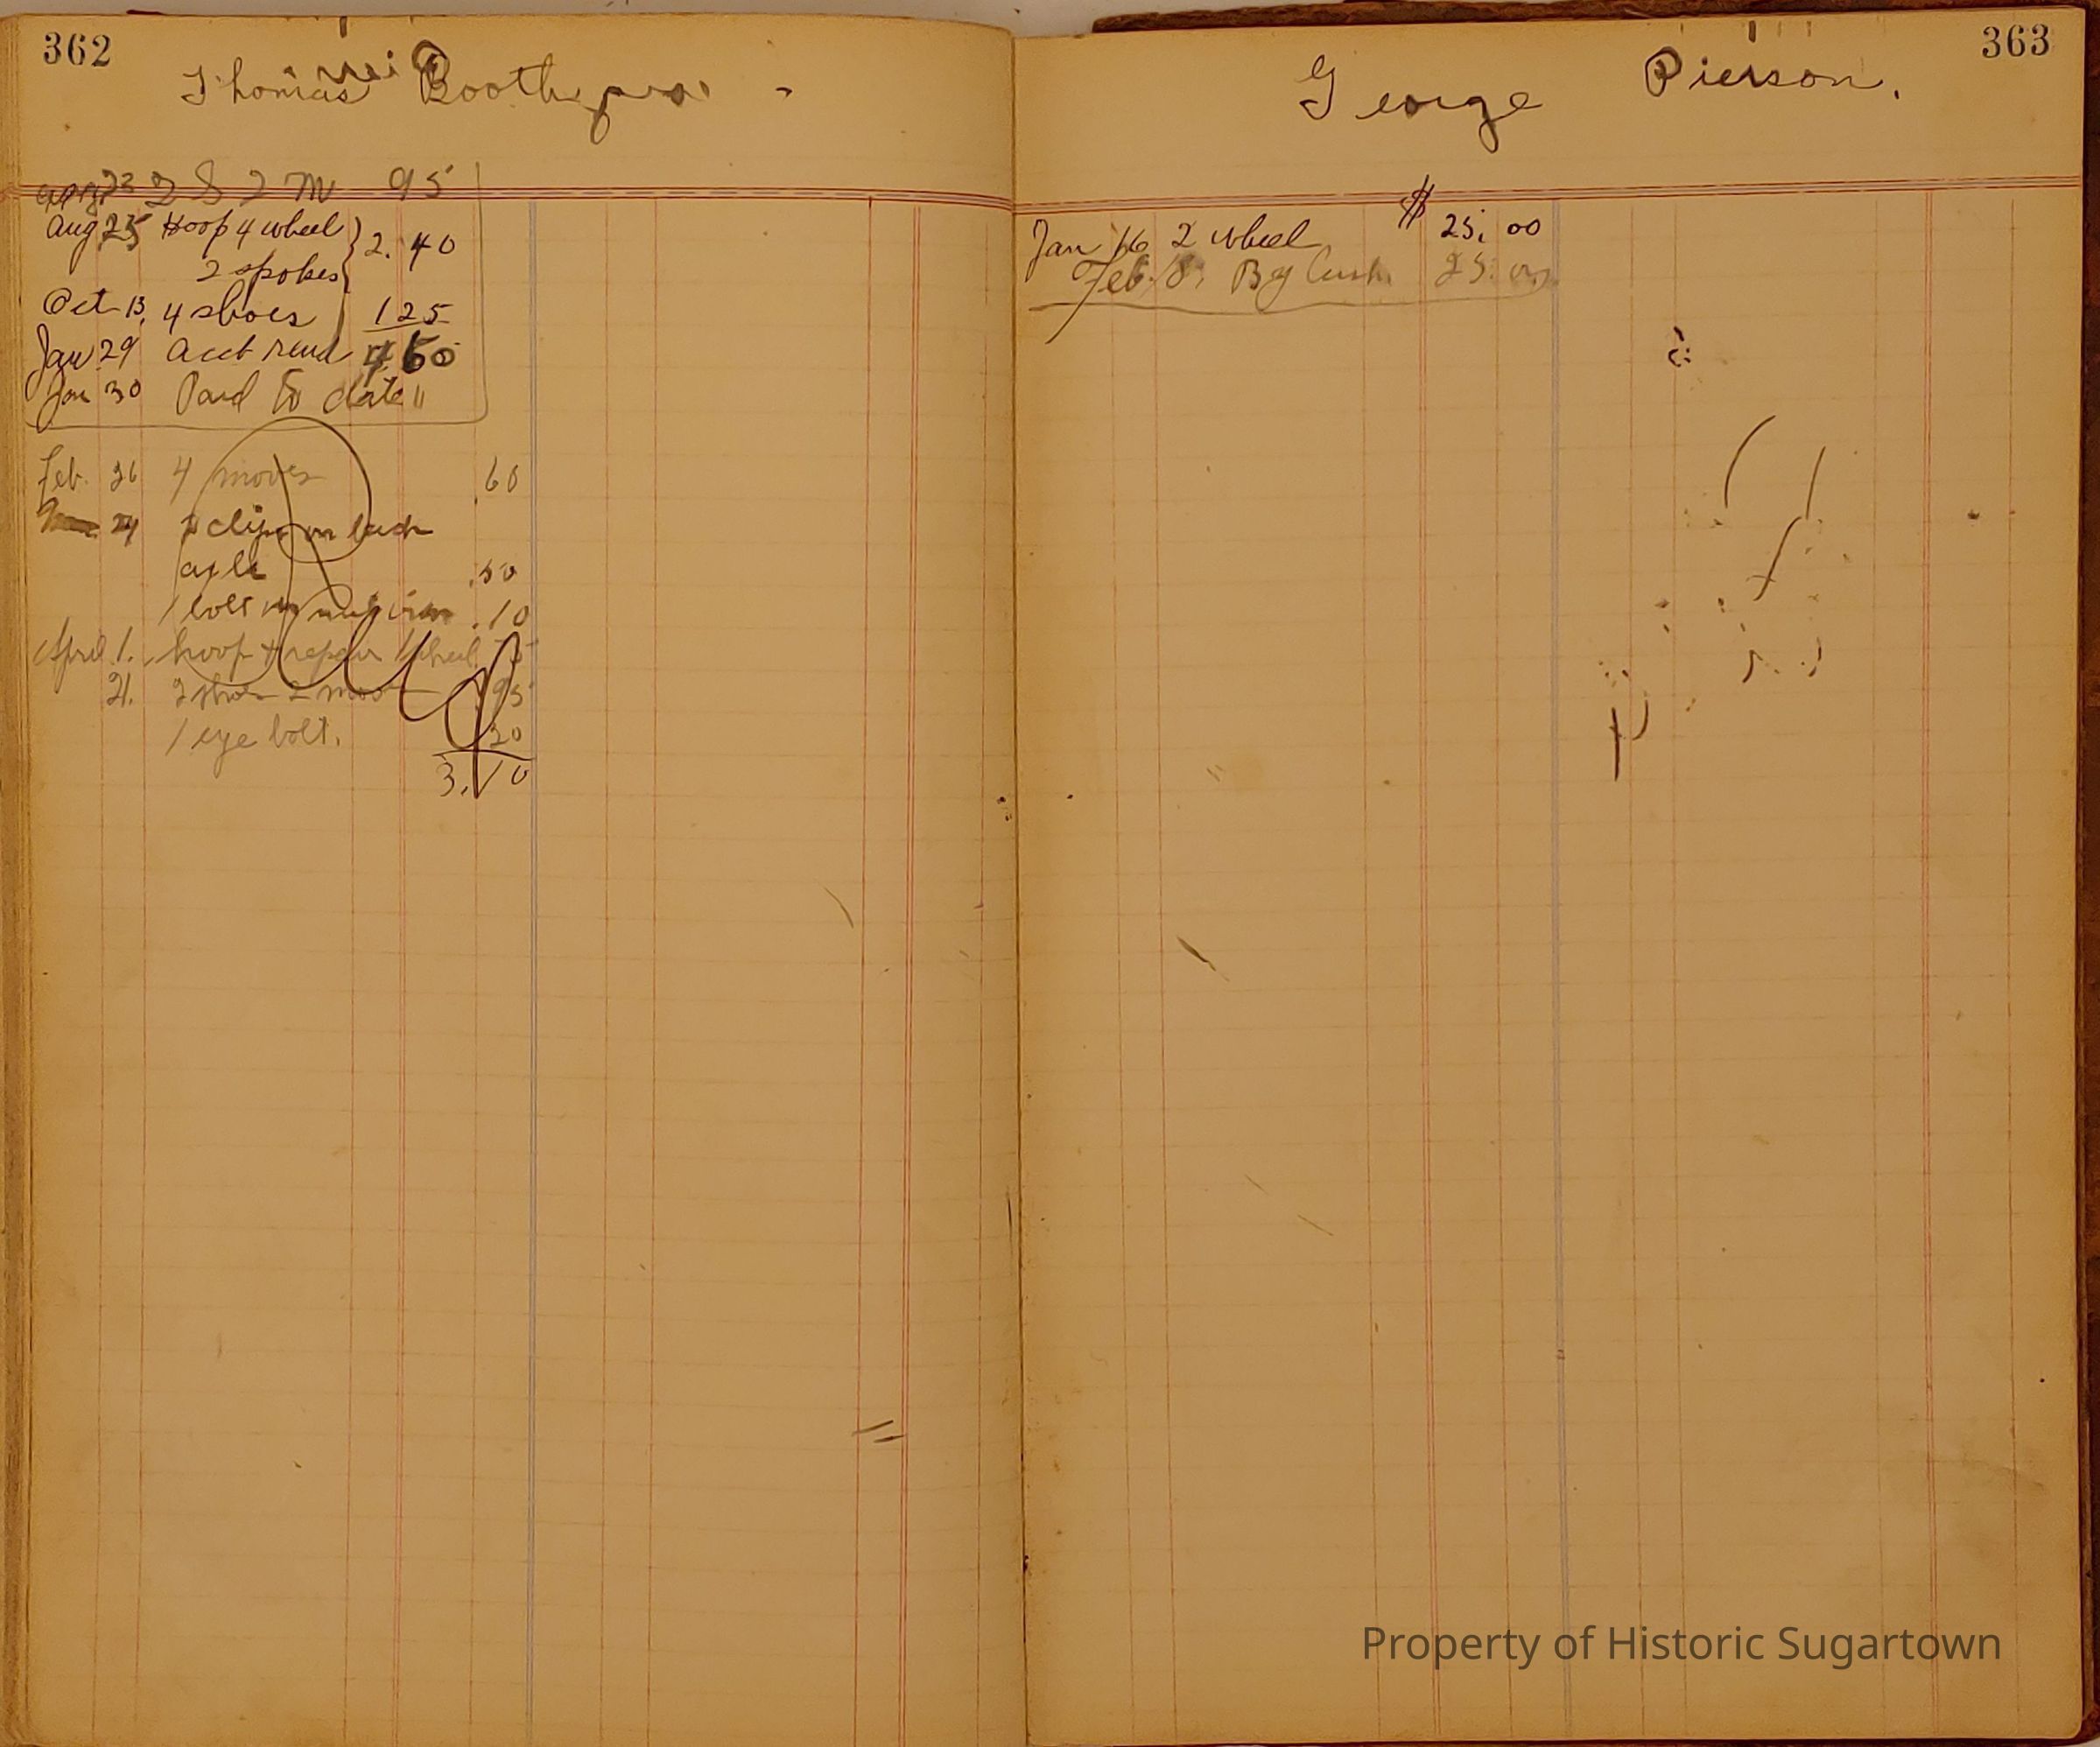 362
Thomas Booth
95
Aug 25 Hoop 4 wheel
2 spokes 2.40
Oct 13, 4 shoes 125
Jan 29 acct rend 4 60
Jan 30 Paid to date "
Feb. 26 4 moves .60
clips on back
axle .50
1 bolt .10
April 1. hoop + repair 1 wheel
21. 2 shoes 2 moves 95
1 eye bolt. 20
3.10
363
George Pierson.
Jan 16 2 wheel $ 25.00
Feb. 8, By Cash 25.00
Property of Historic Sugartown